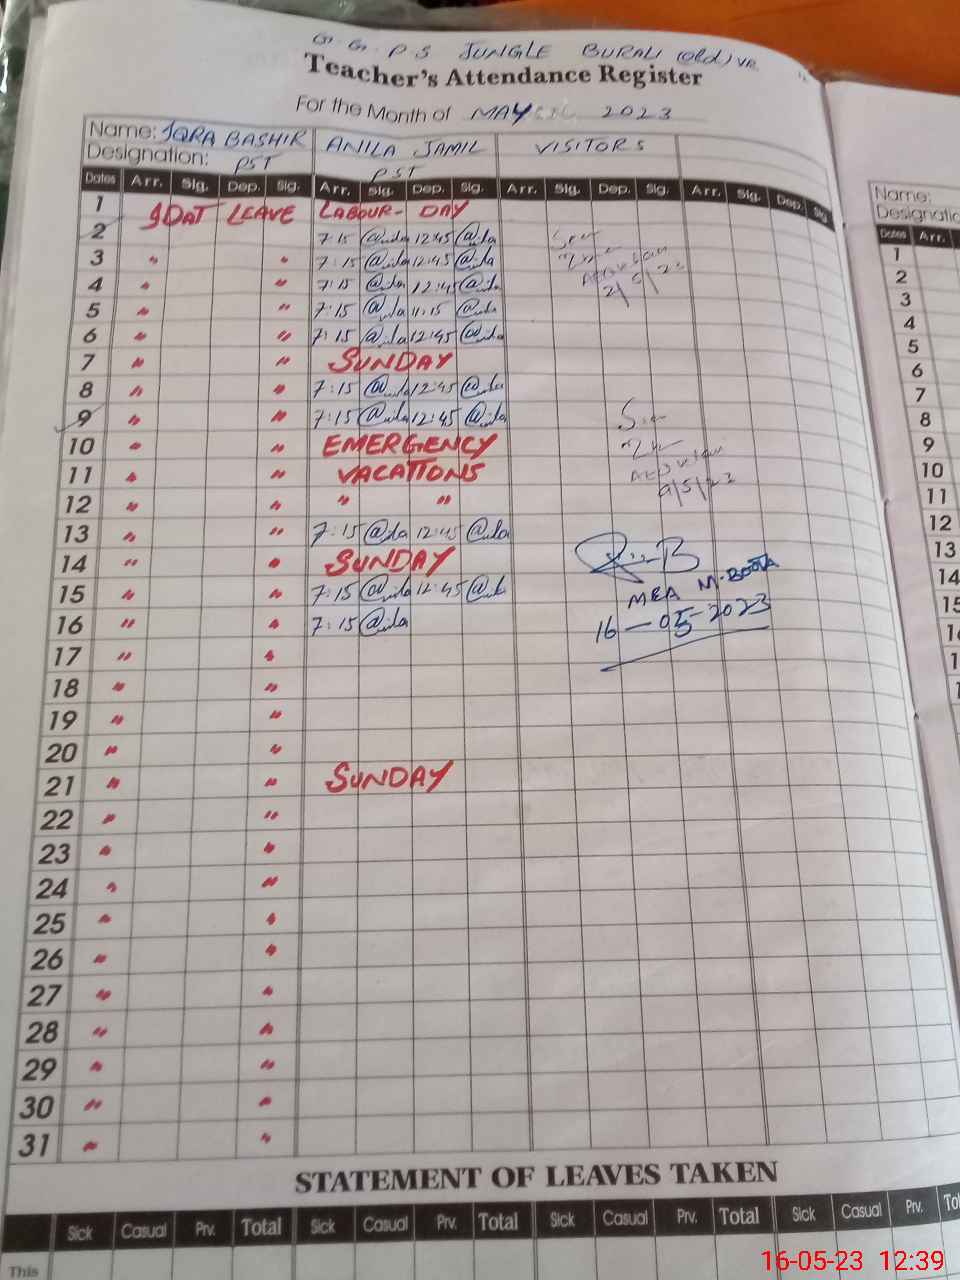 G. G. P. S JUNGLE BURALI (Old) VR
Teacher's Attendance Register
For the Month of MAY 2023
Name: IQRA BASHIR ANILA JAMIL VISITORS
Designation: PST PST
Dates Arr. Sig. Dep. Sig. Arr. Sig. Dep. Sig. Arr. Sig. Dep. Sig. Arr. Sig. Dep. Sig
1 IDAT LEAVE LABOUR- DAY
2 7:15 @nila 12:45 @nila
3 " " 7:15 @nila 12:45 @nila
4 " " 7:15 @nila 12:45 @nila 2/5/23
5 " " 7:15 @nila 11:15 @nila
6 " " 7:15 @nila 12:45 @nila
7 " " SUNDAY
8 " " 7:15 @nila 12:45 @nila
9 " " 7:15 @nila 12:45 @nila
10 " " EMERGENCY
11 " " VACATIONS 9/5/23
12 " " " "
13 " " 7:15 @nila 12:45 @nila
14 " " SUNDAY
15 " " 7:15 @nila 12:45 @nila MEA M.BOOTA
16 " " 7:15 @nila 16-05-2023
17 " "
18 " "
19 " "
20 " "
21 " " SUNDAY
22 " "
23 " "
24 " "
25 " "
26 " "
27 " "
28 " "
29 " "
30 " "
31 " "
STATEMENT OF LEAVES TAKEN
Sick Casual Prv. Total Sick Casual Prv. Total Sick Casual Prv. Total Sick Casual Prv. To
This
Name:
Designatio
Dates Arr.
1
2
3
4
5
6
7
8
9
10
11
12
13
14
15
16-05-23 12:39